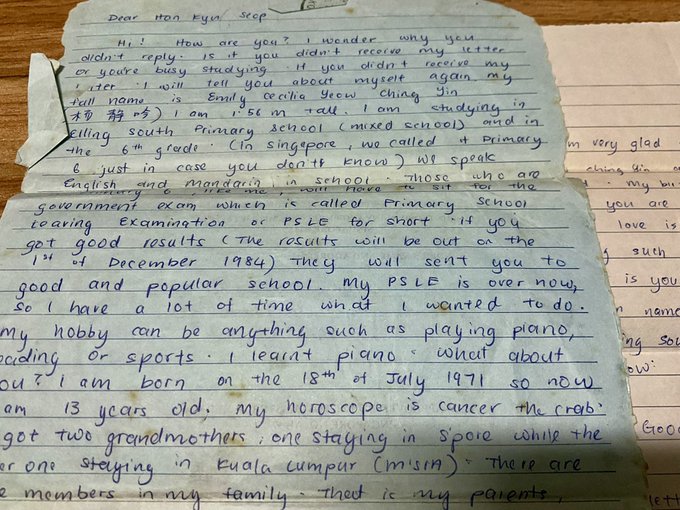 Dear Hon Kyun Seop
Hi! How are you? I wonder why you
didn't reply. is it you didn't receive my letter
or you're busy studying. If you didn't receive my
I will tell you about myself again my
full name is Emily Cecilia Yeow Ching Yin
杨 静 吟) I am 1.56 m tall. I am studying in
South Primary School (mixed school) and in
the 6th grade. (In Singapore, we called it Primary
6 just in case you don't know) we speak
English and Mandarin, in school. Those who are
will have to sit for the
government exam which is called Primary School
Leaving Examination or PSLE for short. if you
got good results (The results will be out on the
1st of December 1984) They will sent you to
good and popular school. my PSLE is over now,
so I have a lot of time what I wanted to do.
my hobby can be anything such as playing piano,
or sports. I learnt piano. what about
I am born on the 18th of July 1971 so now
am 13 years old. my horoscope is cancer the crab.
got two grandmothers, one staying in S'pore while the
one staying in Kuala Lumpur (M'SIA). There are
members in my family. That is my parents,
m very glad
ching Yin
you are
love is
such
is you
name
Good